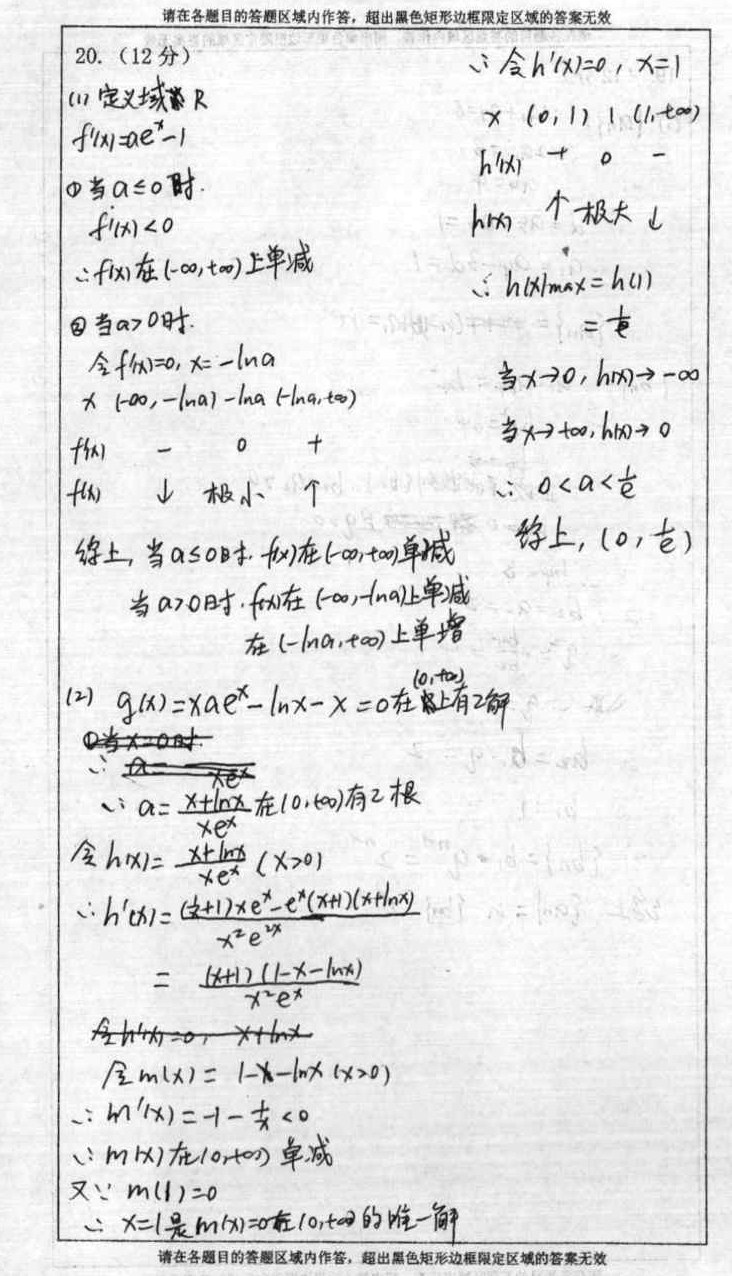 请在各题目的答题区域内作答，超出黑色矩形边框限定区域的答案无效
20.（12分）
(1) 定义域 R
f'(x)=ae^x-1
①当a≤0时.
f'(x)<0
∴f(x)在(-∞,+∞)上单减
②当a>0时.
令f'(x)=0, x=-lna
x (-∞,-lna) -lna (-lna,+∞)
f'(x) - 0 +
f(x) ↓ 极小 ↑
综上, 当a≤0时. f(x)在(-∞,+∞)单减
当a>0时. f(x)在(-∞,-lna)上单减
在(-lna,+∞)上单增
(2) g(x)=xae^x-lnx-x=0在(0,+∞)上有2解
①当x=0时.
∴ a= xe^x
∴ a=\frac{x+lnx}{xe^x}在(0,+∞)有2根
令h(x)=\frac{x+lnx}{xe^x} (x>0)
∴h'(x)=\frac{(\frac{1}{x}+1)xe^x-e^x(x+1)(x+lnx)}{x^2e^{2x}}
=\frac{(x+1)(1-x-lnx)}{x^2e^x}
令h'(x)=0, x+lnx
令m(x)=1-x-lnx (x>0)
∴m'(x)=-1-\frac{1}{x}<0
∴m(x)在(0,+∞)单减
又∵m(1)=0
∴x=1是m(x)=0在(0,+∞)的唯一解
∴令h'(x)=0, x=1
x (0,1) 1 (1,+∞)
h'(x) + 0 -
h(x) ↑ 极大 ↓
∴h(x)max=h(1)
=\frac{1}{e}
当x→0, h(x)→-∞
当x→+∞, h(x)→0
∴0<a<\frac{1}{e}
综上, (0,\frac{1}{e})
请在各题目的答题区域内作答，超出黑色矩形边框限定区域的答案无效